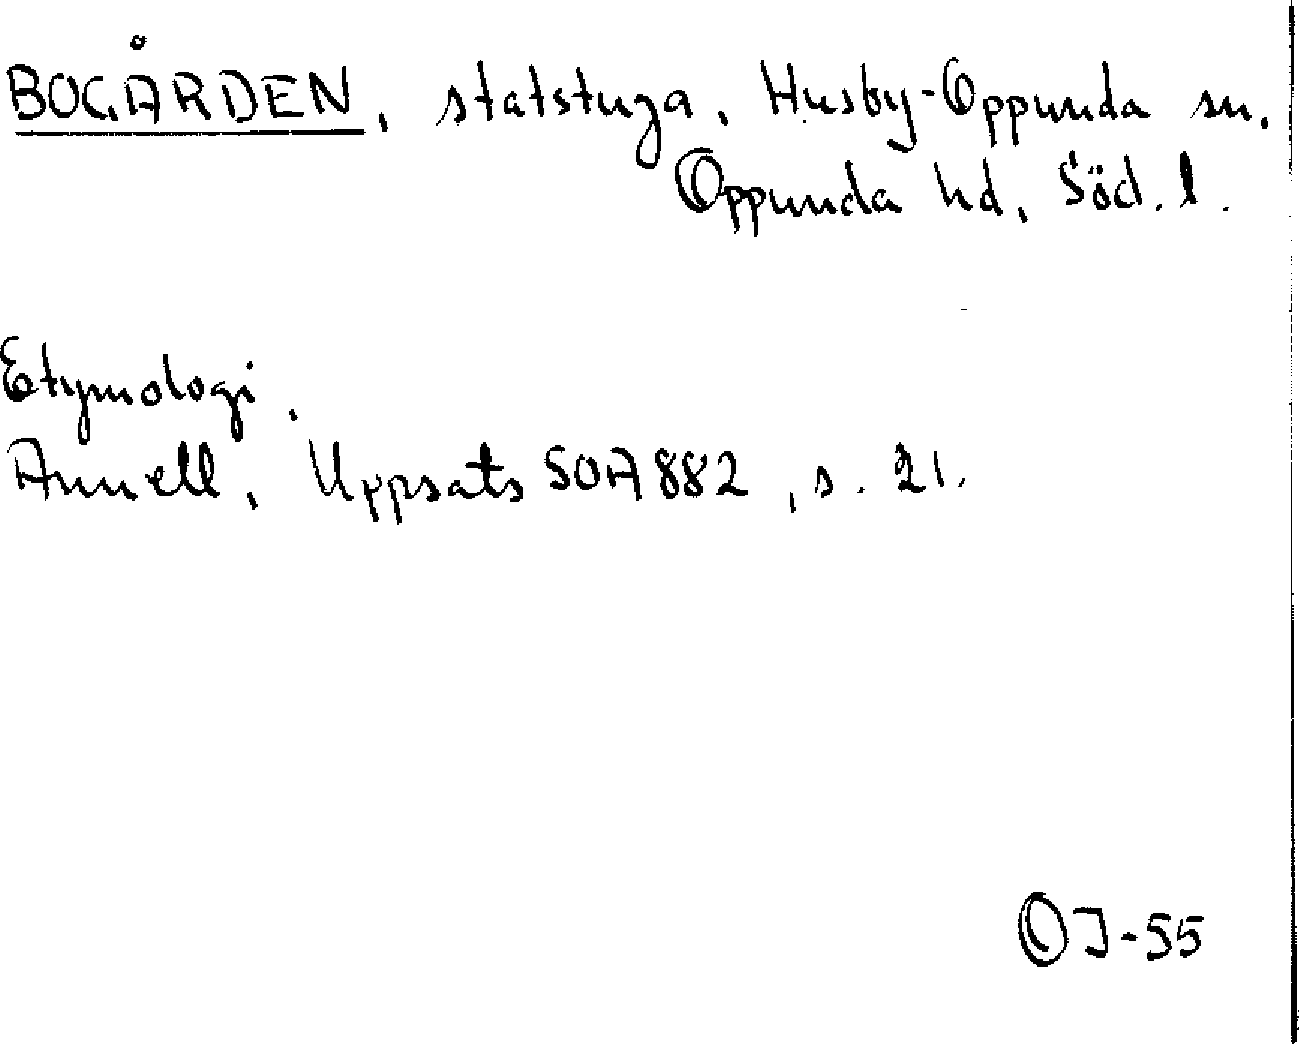 BOGÅRDEN, statstuga, Husby-Oppunda sn,
Oppunda hd, Söd. l.
Etymologi.
Annell, Uppsats SOA 882, s. 21.
OJ-55